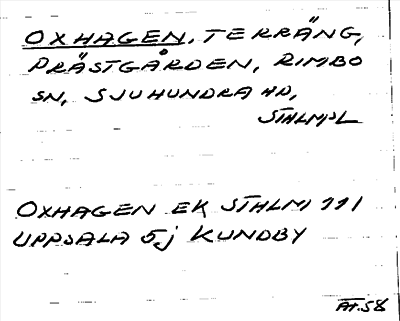 OXHAGEN, TERRÄNG,
PRÄSTGÅRDEN, RIMBO
SN, SJUHUNDRA HD,
STHLMSL
OXHAGEN EK STHLM 111
UPPSALA 5j KUNDBY
AT.58